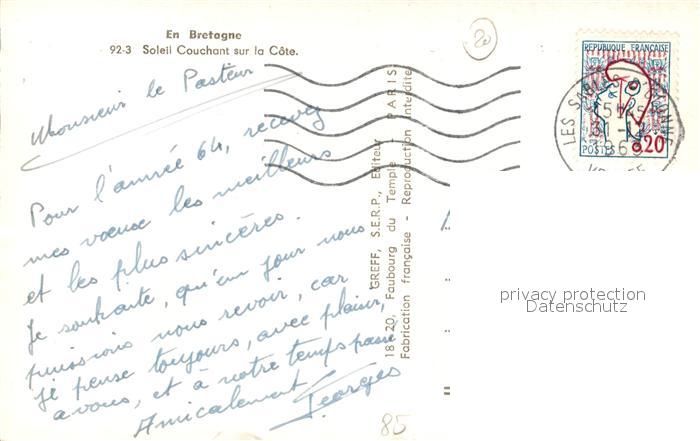 En Bretagne
92-3 Soleil Couchant sur la Côte.
20
Monsieur le Pasteur
Pour l'année 64, recevez
mes voeux les meilleurs
et les plus sincères.
Je souhaite, qu'un jour nous
puissions nous revoir, car
je pense toujours, avec plaisir,
a vous, et à notre temps passé
Amicalement Georges
85
GREFF, S.E.R.P., Editeur
18-20, Faubourg du Temple PARIS
Fabrication française - Reproduction interdite
REPUBLIQUE FRANÇAISE
POSTES 0,20
LES S
privacy protection
Datenschutz